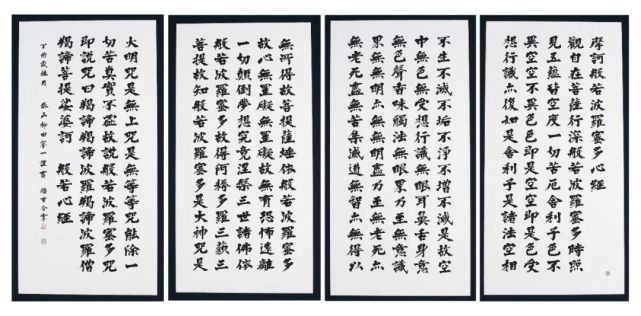 摩訶般若波羅蜜多心經
觀自在菩薩行深般若波羅蜜多時照
見五蘊皆空度一切苦厄舍利子色不
異空空不異色色即是空空即是色受
想行識亦復如是舍利子是諸法空相
不生不滅不垢不淨不增不減是故空
中無色無受想行識無眼耳鼻舌身意
無色聲香味觸法無眼界乃至無意識
界無無明亦無無明盡乃至無老死亦
無老死盡無苦集滅道無智亦無得以
無所得故菩提薩埵依般若波羅蜜多
故心無罣礙無罣礙故無有恐怖遠離
一切顛倒夢想究竟涅槃三世諸佛依
般若波羅蜜多故得阿耨多羅三藐三
菩提故知般若波羅蜜多是大神咒是
大明咒是無上咒是無等等咒能除一
切苦真實不虛故說般若波羅蜜多咒
即說咒曰羯諦羯諦波羅羯諦波羅僧
羯諦菩提娑婆訶 般若心經